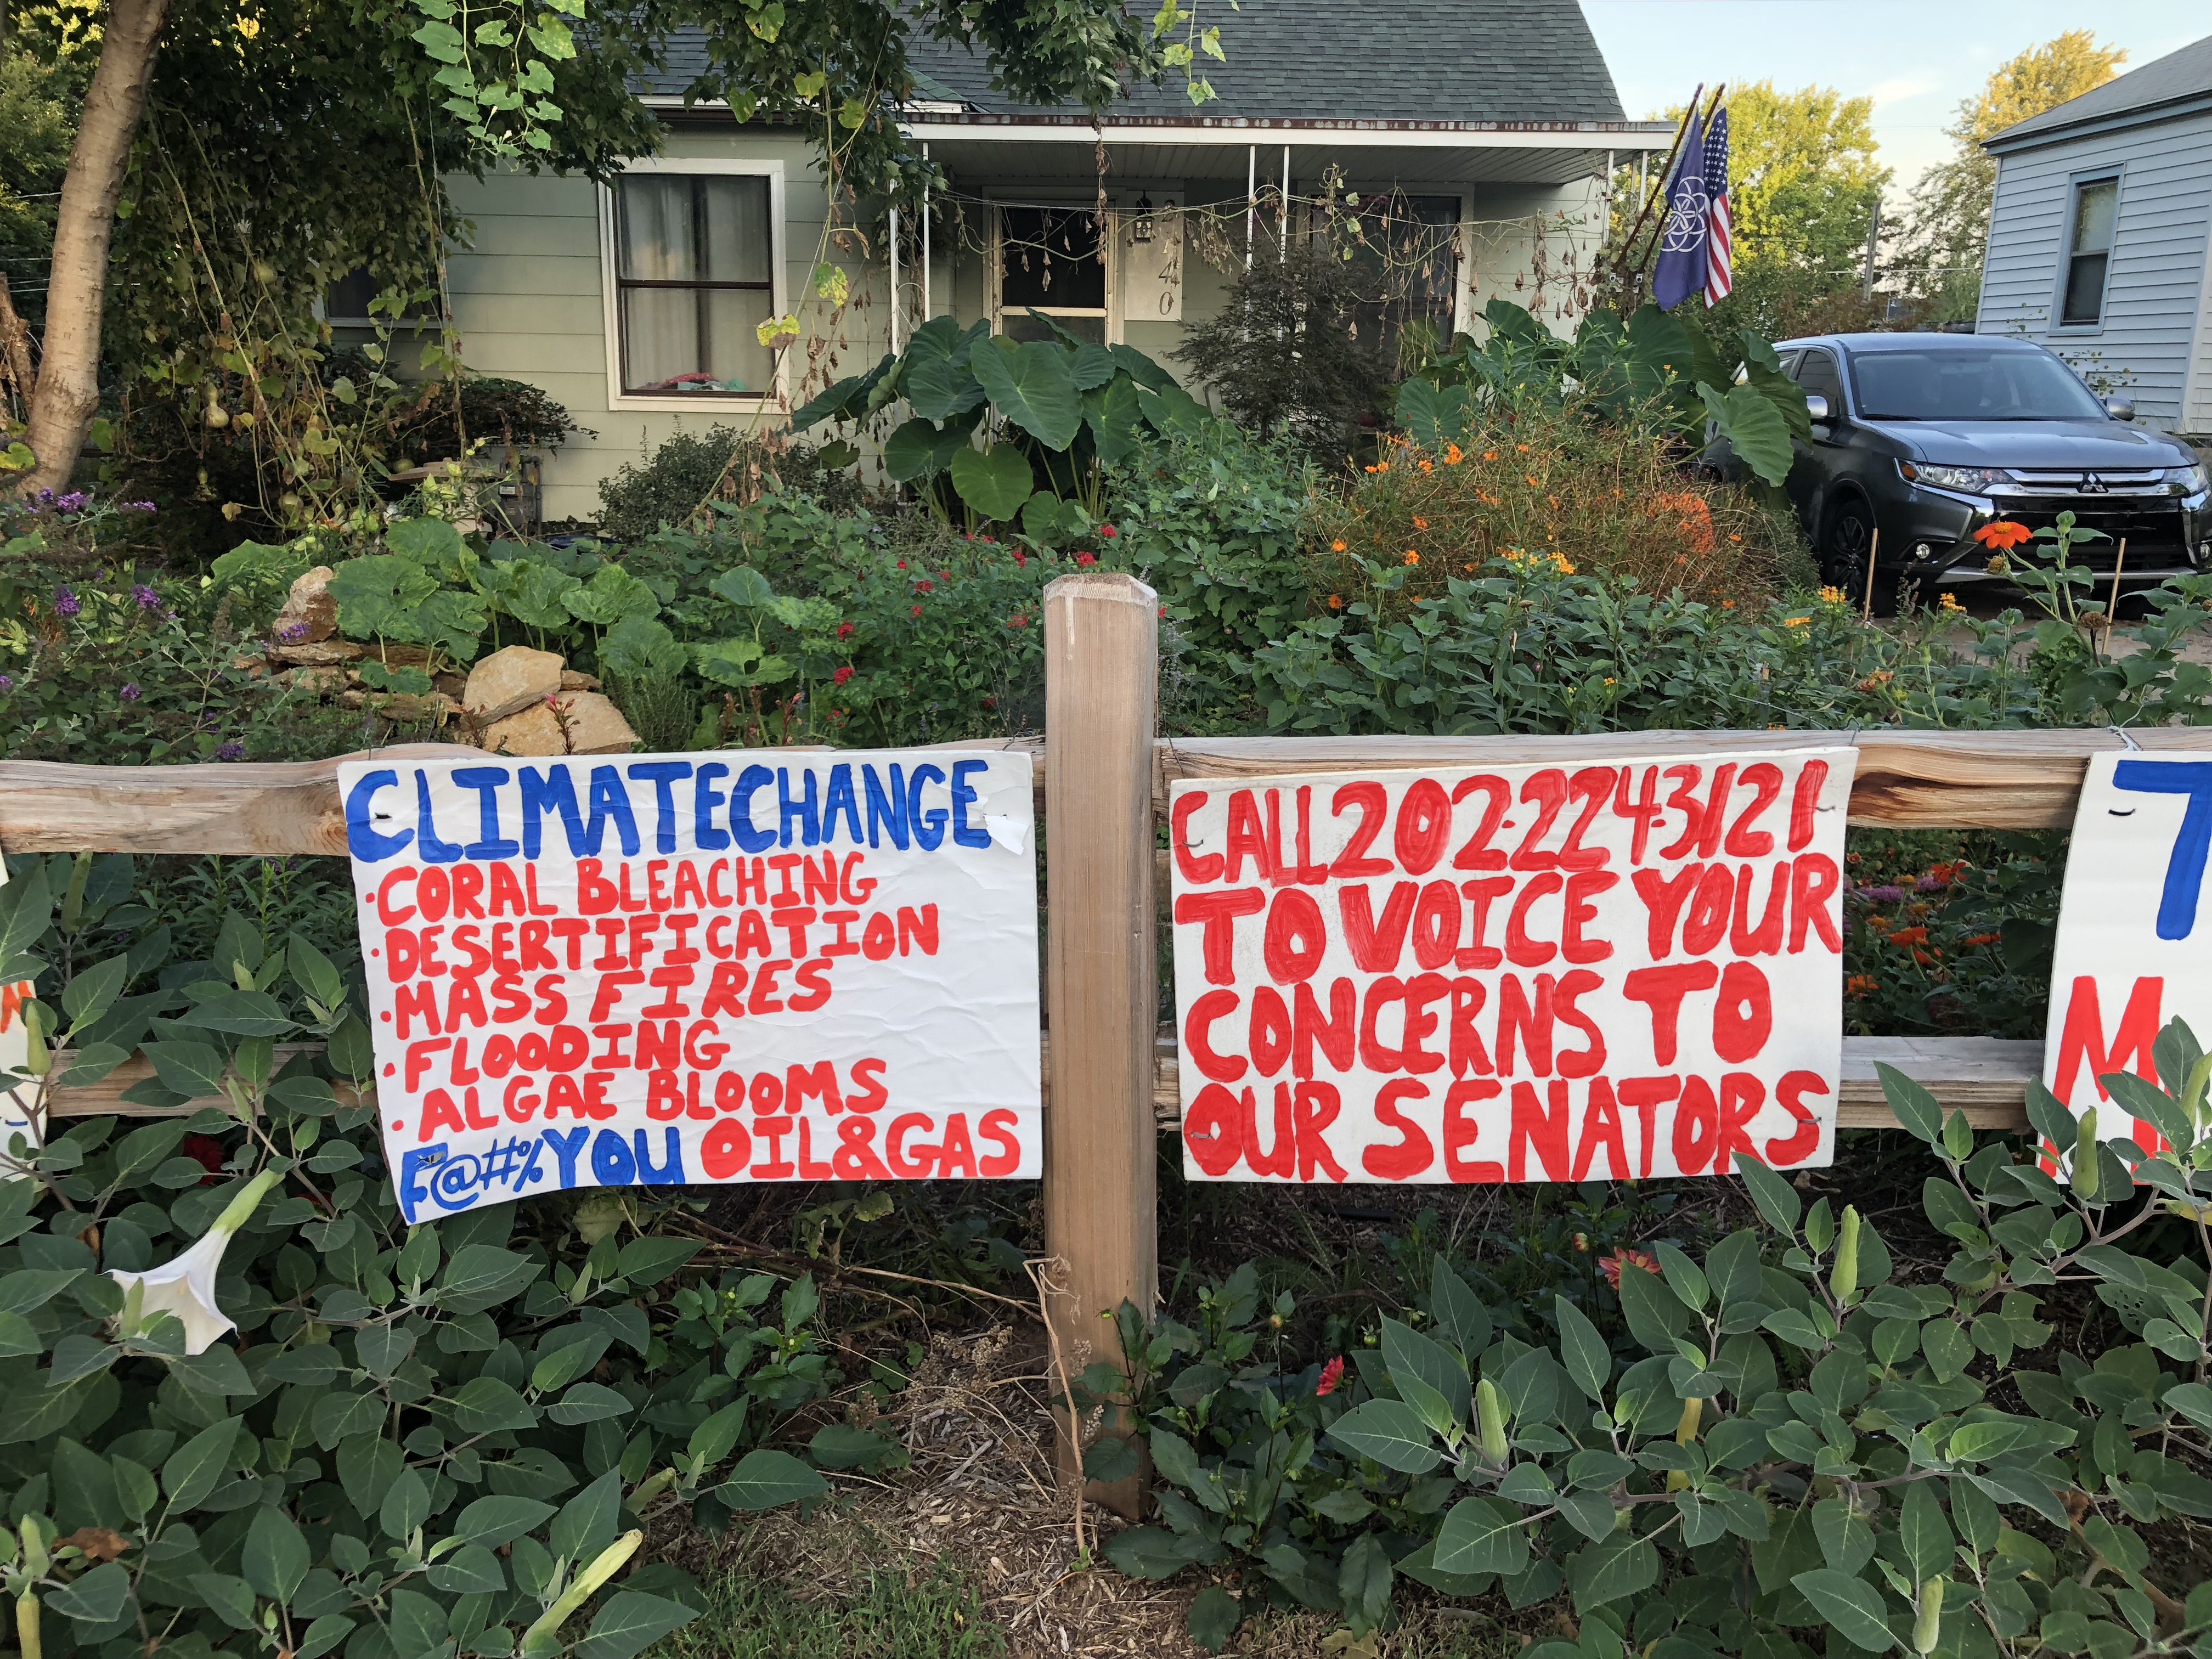 CLIMATE CHANGE
·CORAL BLEACHING
·DESERTIFICATION
·MASS FIRES
·FLOODING
·ALGAE BLOOMS
F@#% YOU OIL & GAS
CALL 202-224-3121
TO VOICE YOUR
CONCERNS TO
OUR SENATORS
T
M
40